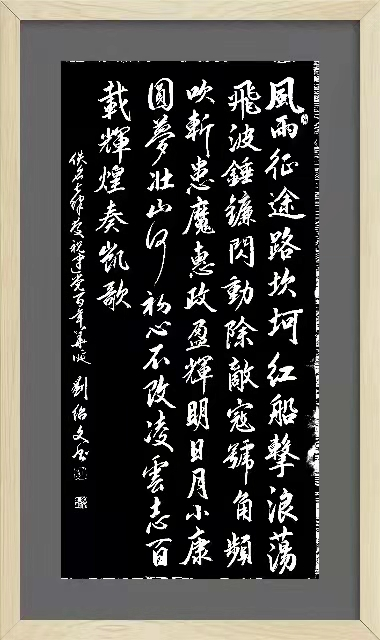 風雨征途路坎坷紅船擊浪蕩
飛波錘鐮閃動除敵寇號角頻
吹斬患魔惠政盈輝明日月小康
圓夢壯山河初心不改凌雲志百
載輝煌奏凱歌
佚名老師慶祝建党百年華誕 劉紹文书